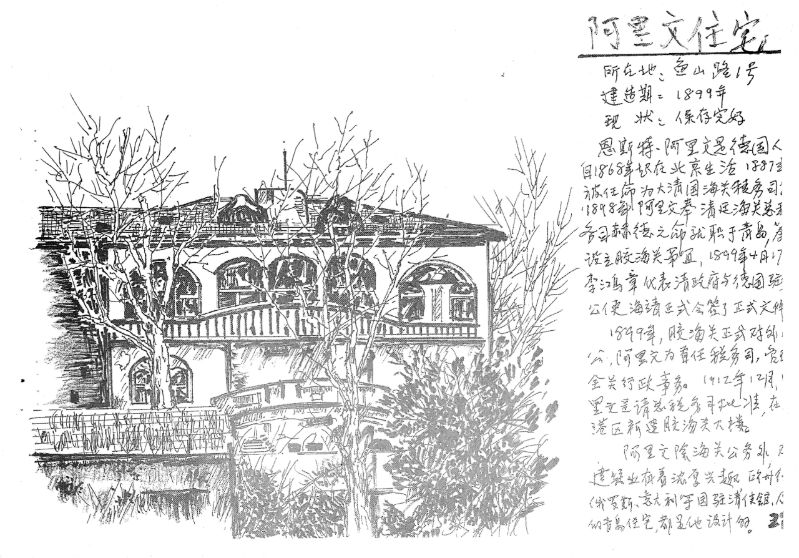 阿里文住宅
所在地：鱼山路1号
建造期：1899年
现 状：保存完好
恩斯特、阿里文是德国人
自1868年起在北京生活 1887年
被任命为大清国海关税务司
1898年 阿里文奉清廷海关总税
务司赫德之命就职于青岛，
设立胶海关事宜。1899年4月17
李鸿章代表清政府与德国驻
公使海靖正式会签了正式文件
1899年，胶海关正式对外
公，阿里文为首任税务司，负责
全关行政事务。1912年12月，
里文呈请总税务司批准，在
港区新建胶海关大楼。
阿里文除海关公务外，
建筑业有着浓厚兴趣
俄罗斯、意大利等国驻清使馆，
的青岛住宅，都是他设计的。